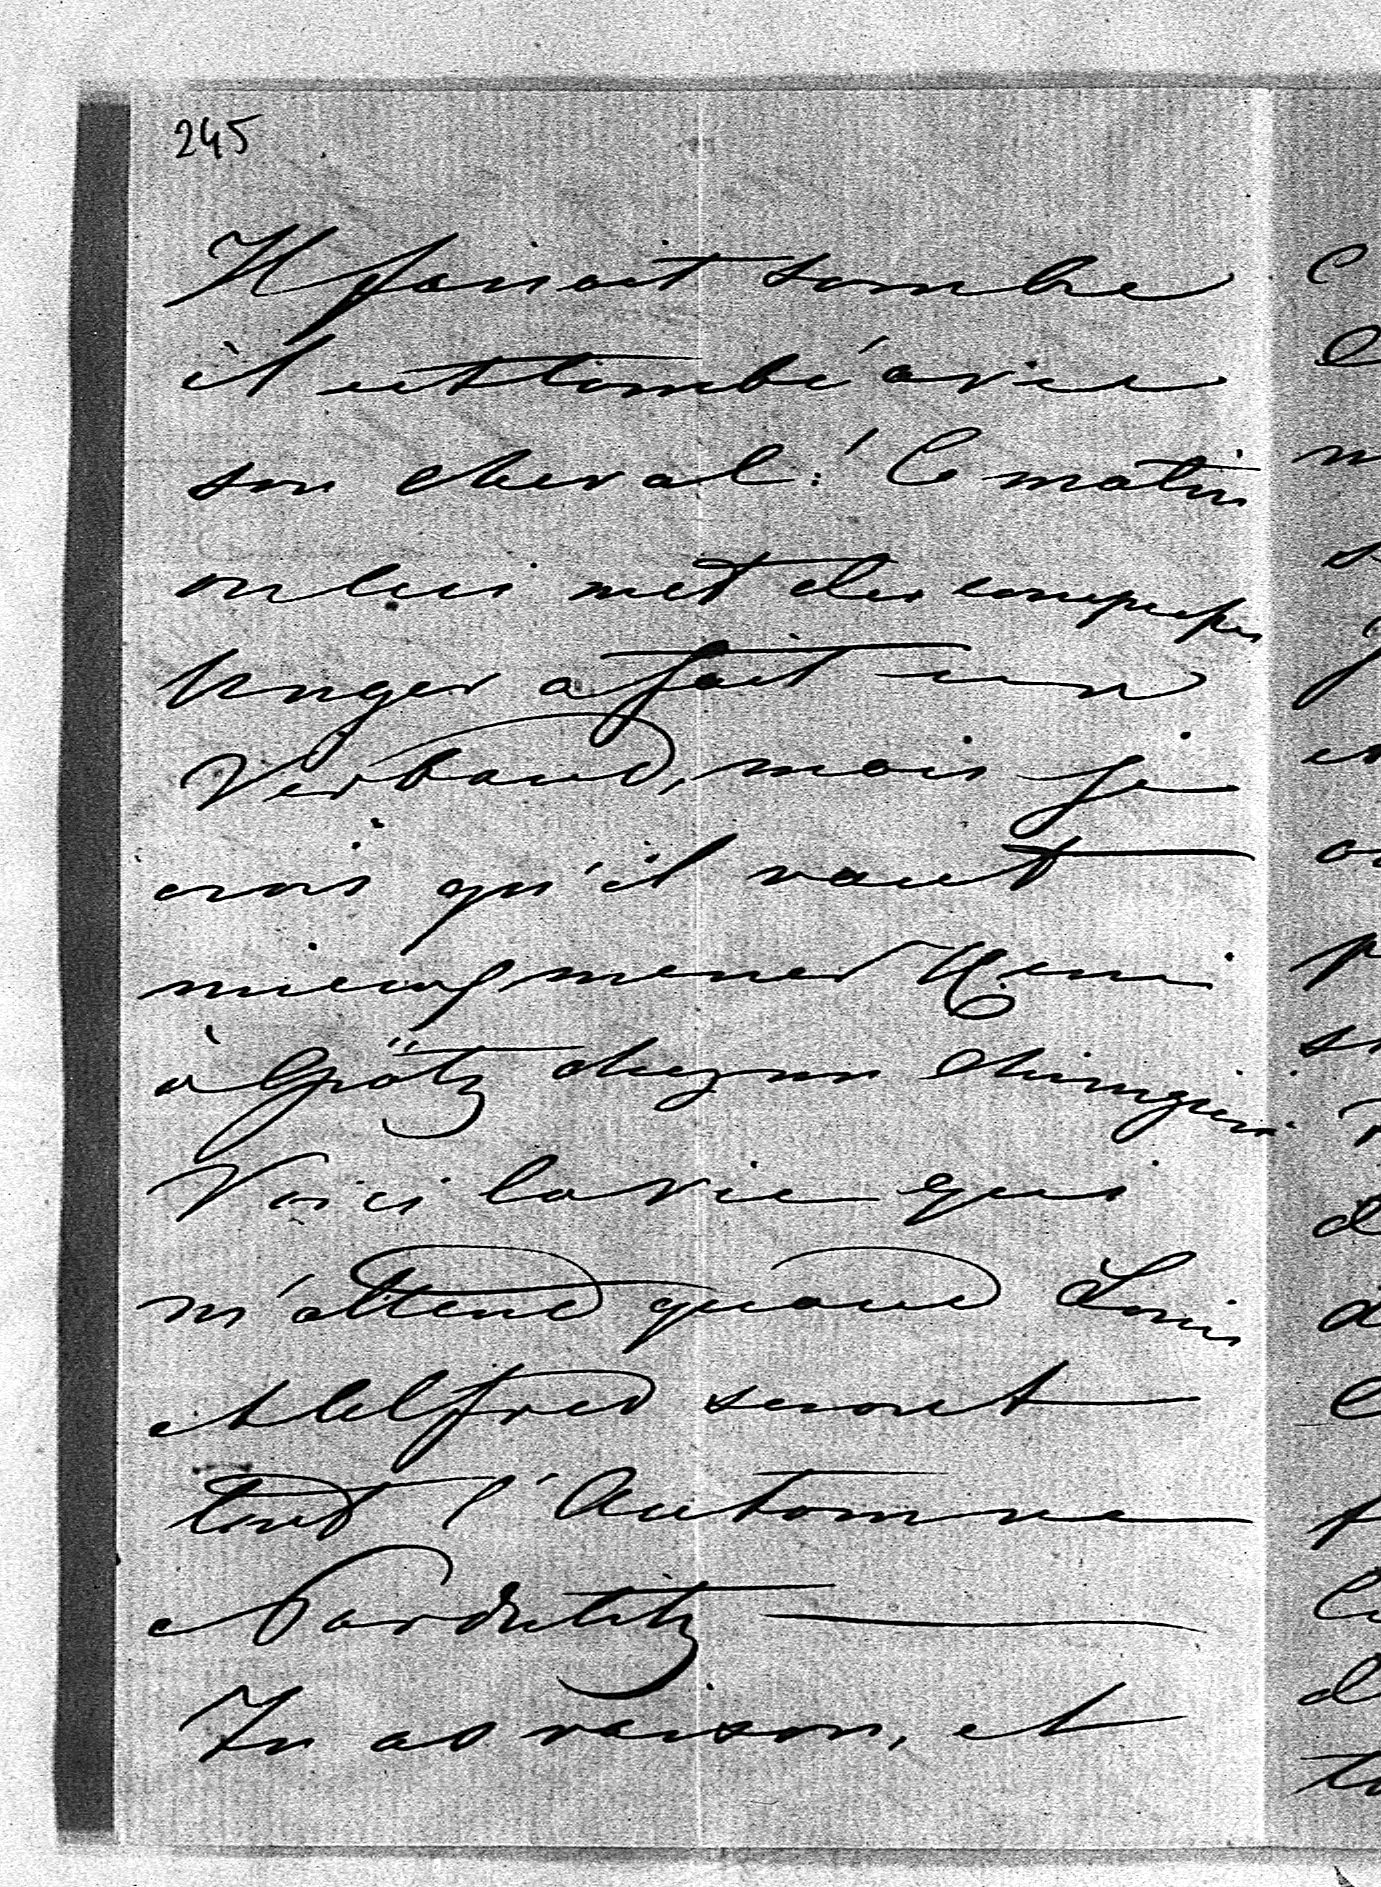 245
Il faisait sombre
il est tombé avec
son cheval! Ce matin
on lui met des compresses
Unger a fait un
Verband, mais je
crois qu'il vaut
mieux mener
à Grätz chez un chirurgien.
Voici la vie qui
m'attend quand Louis
et Alfred seront
tout l'Automne
à Pardubitz
Tu as raison, et